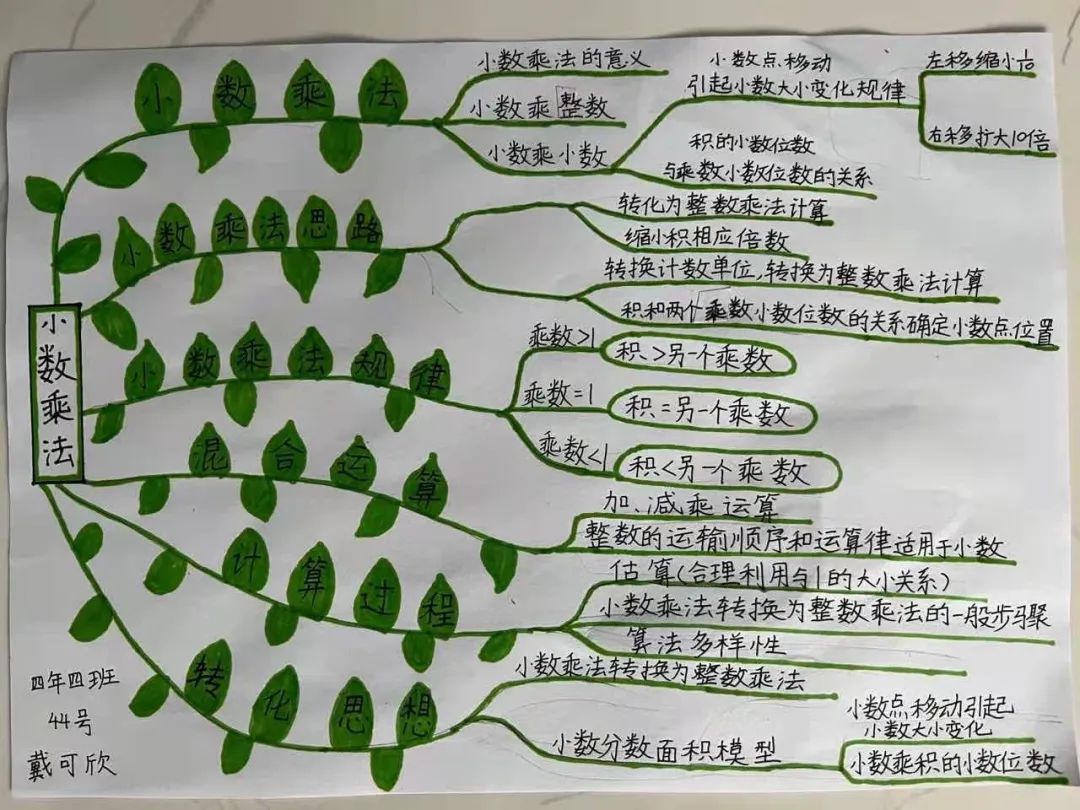 小数乘法
小数乘法
小数乘法的意义
小数乘整数
小数乘小数
小数点移动
引起小数大小变化规律
左移缩小1/10
右移扩大10倍
积的小数位数
与乘数小数位数的关系
小数乘法思路
转化为整数乘法计算
缩小积相应倍数
转换计数单位,转换为整数乘法计算
积和两个乘数小数位数的关系确定小数点位置
小数乘法规律
乘数>1
积>另一个乘数
乘数=1
积=另一个乘数
乘数<1
积<另一个乘数
混合运算
加、减乘运算
整数的运输顺序和运算律适用于小数
计算过程
估算(合理利用与1的大小关系)
小数乘法转换为整数乘法的一般步骤
算法多样性
转化思想
小数乘法转换为整数乘法
小数分数面积模型
小数点移动引起
小数大小变化
小数乘积的小数位数
四年四班
44号
戴可欣